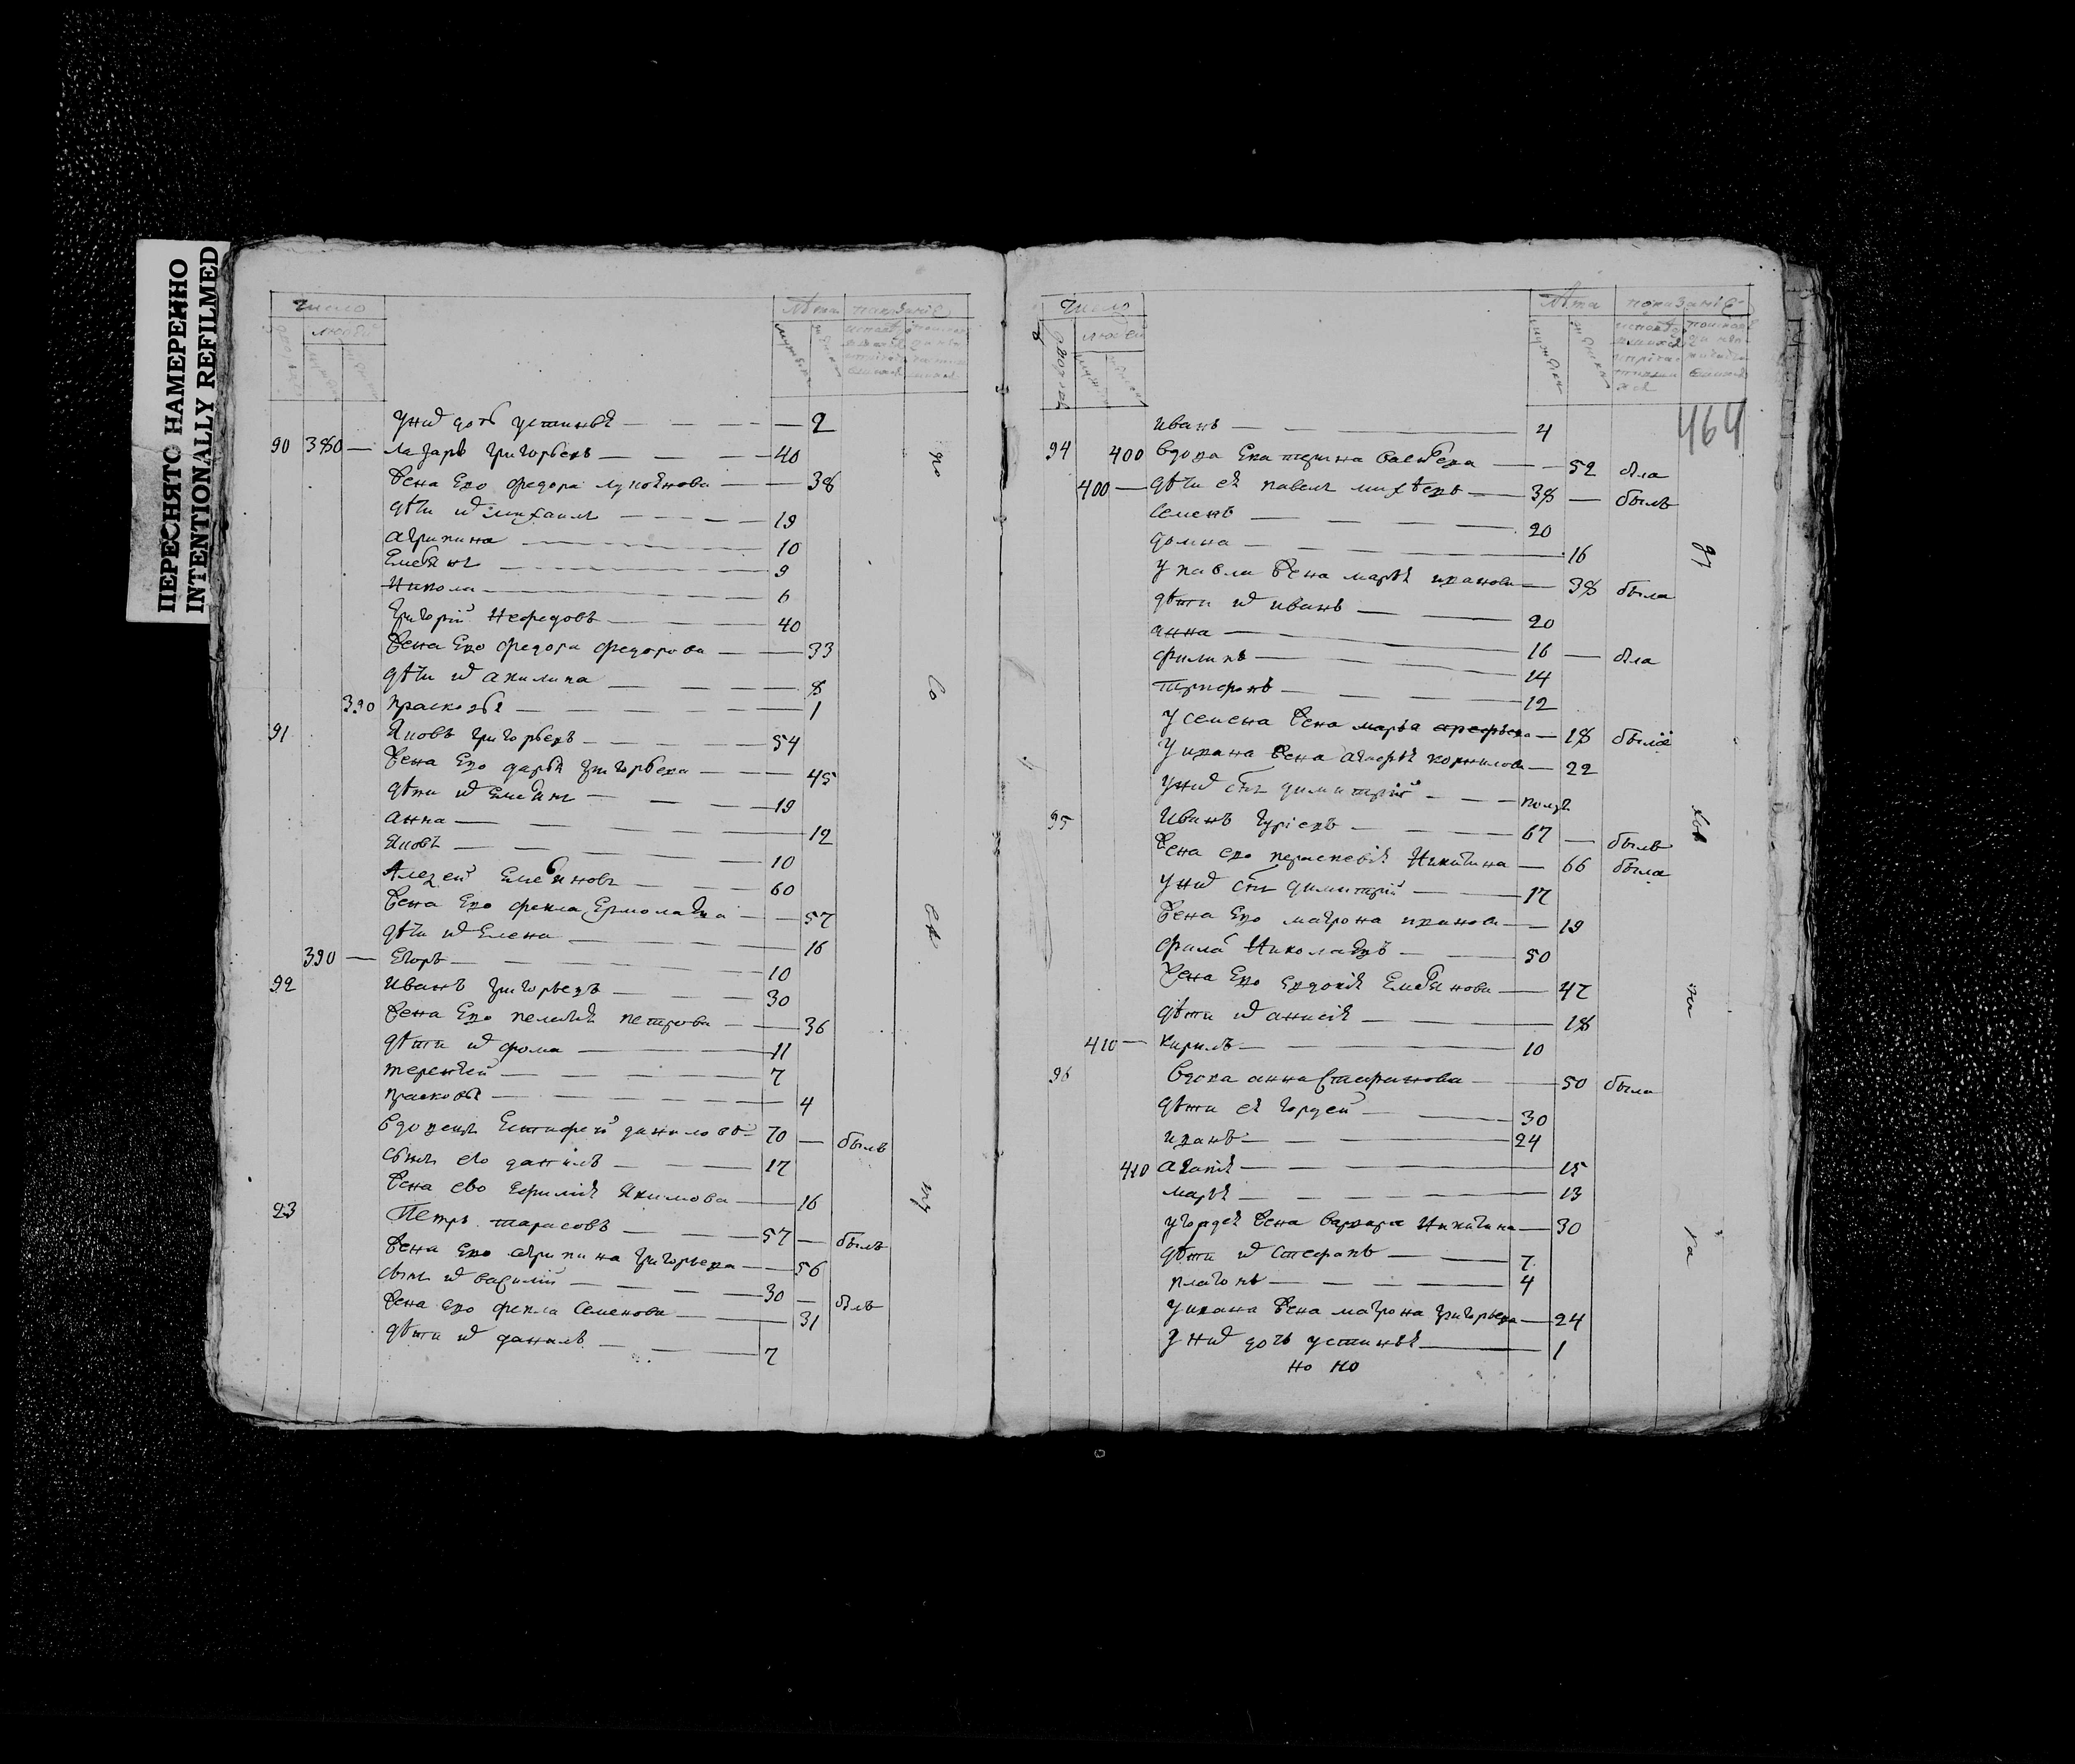 ПЕРЕСНЯТО НАМЕРЕННО
INTENTIONALLY REFILMED
Число
Лѣта показанїе
людей
у нихъ дочь устинья — 2
90 380 — лазарь григорьевъ — 40
жена ево федора лукоянова — 38
дѣти ихъ михаилъ — 19
агрипина — 10
Емельянъ — 9
Никола — 6
григорїй Нефедовъ — 40
жена ево федора федорова — 33
дѣти ихъ акилина — 8
390 прасковья — 1
91 Яковъ григорьевъ — 54
жена ево дарья григорьева — 45
дѣти ихъ Емельянъ — 19
анна — 12
Яковъ — 10
Алезей Емельяновъ — 60
жена ево фекла Ермолаева — 57
дѣти ихъ Елена — 16
390 — Егоръ — 10
92 иванъ григорьевъ — 30
жена ево пелагѣя петрова — 36
дѣти ихъ фома — 11
терентей — 7
прасковья — 4
вдовецъ Естифей данилове — 70 — былъ
сынъ его данилъ — 17
жена ево Ефимия Якимова — 16
93 Петръ тарасовъ — 57 — былъ
жена ево агрипина григорьева — 56
сынъ ихъ василїй — 30 — былъ
жена ево фекла Семенова — 31
дѣти ихъ данилъ — 7
по
Со
Число
Лѣта показанїе
людей
464
иванъ — 4
94 400 вдова Екатерина васильева — 52 бла
400 — дѣти ея павелъ михѣевъ — 38 — былъ
семенъ — 20
домна — 16
у павла жена марья иванова — 38 была
дѣти ихъ иванъ — 20
анна — 16 — бла
филипъ — 14
трифонъ — 12
у семена жена марья арефьева — 18 была
у ивана жена агафья корнилова — 22
у нихъ сынъ димитрїй — полгд
95 Иванъ гурїевъ — 67 — былъ
жена ево парасковїя Никитина — 66 была
у нихъ сынъ димитрїй — 17
жена ево матрона иванова — 19
фила Николаевъ — 50
жена ево Евдокїя Емельянова — 47
дѣти ихъ анисїя — 18
410 — кирилъ — 10
96 вдова анна Стафанова — 50 была
дѣти ея гордей — 30
иванъ — 24
410 агапїя — 15
марья — 13
у гордея жена варвара Никитина — 30
дѣти ихъ Стефанъ — 7
платонъ — 4
у ивана жена матрона григорьева — 24
у нихъ дочь устинья — 1
но но